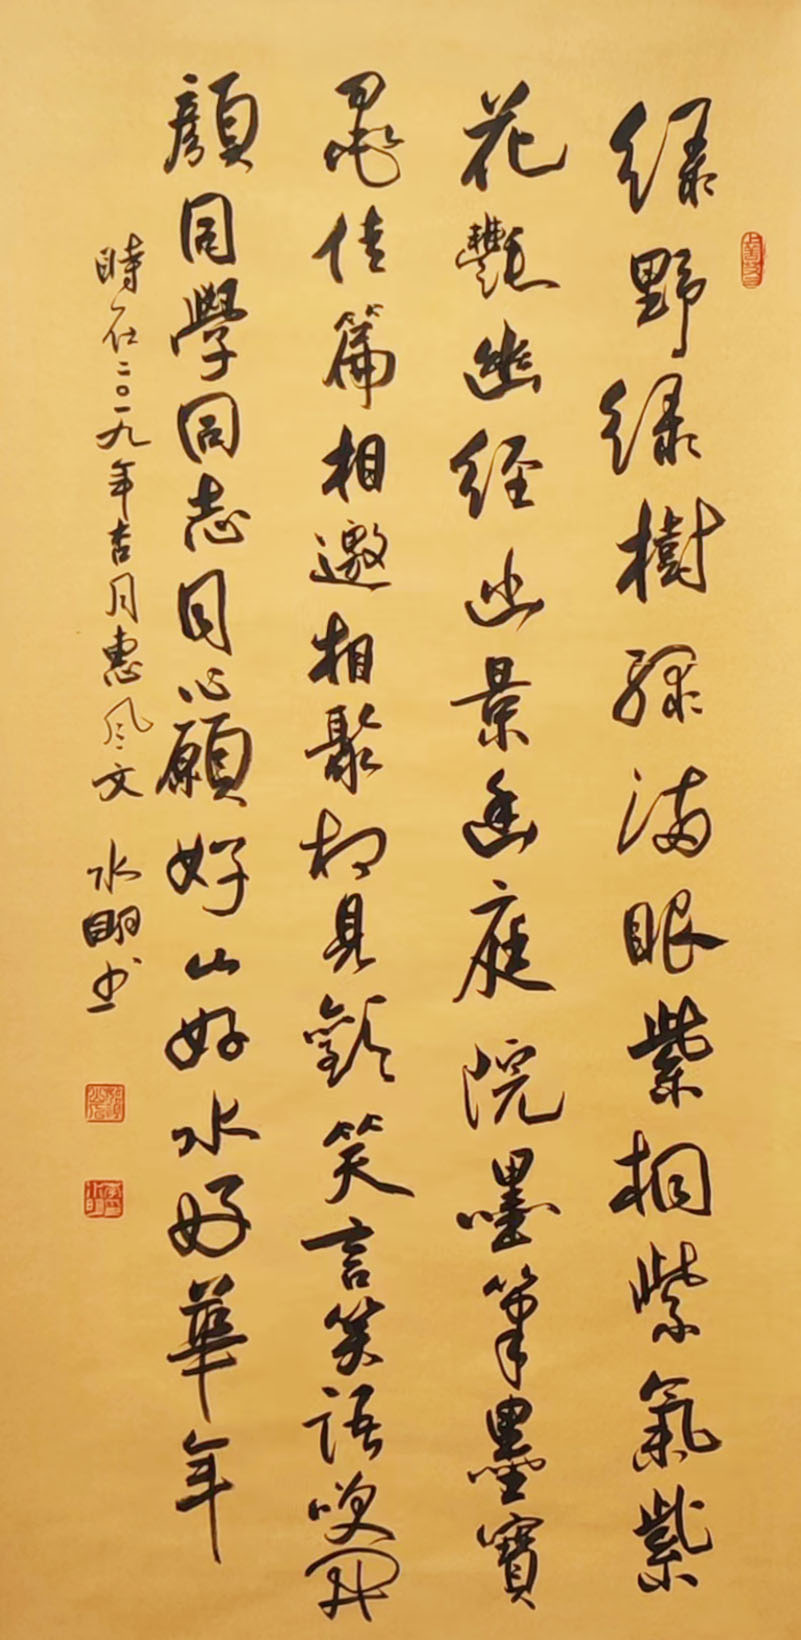 绿野绿樹绿满眼紫桐紫氣紫
花艷幽经幽景幽庭院墨筆墨寶
墨佳篇相邀相聚相見歡笑言笑語笑開
顏同學同志同心願好山好水好華年
時在二〇一九年杏月惠风文 水明书